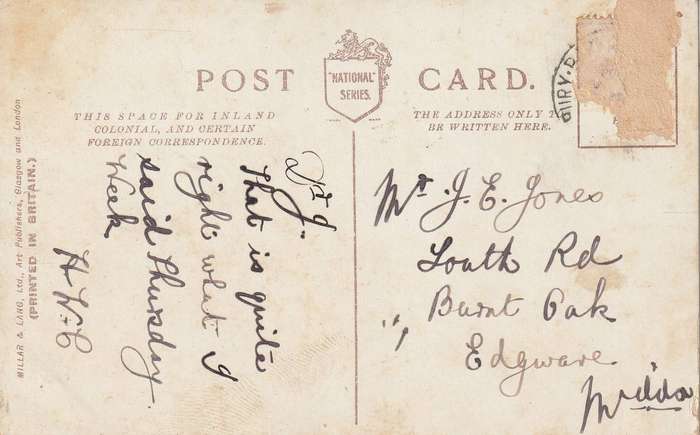 POST CARD.
"NATIONAL"
SERIES.
THIS SPACE FOR INLAND
COLONIAL, AND CERTAIN
FOREIGN CORRESPONDENCE.
THE ADDRESS ONLY TO
BE WRITTEN HERE.
MILLAR & LANG, Ltd., Art Publishers, Glasgow and London
(PRINTED IN BRITAIN.)
Dr J.
That is quite
right what I
said Thursday
Week
H.W.C
Mr. J. E. Jones
South Rd
Burnt Oak
Edgware.
Middx